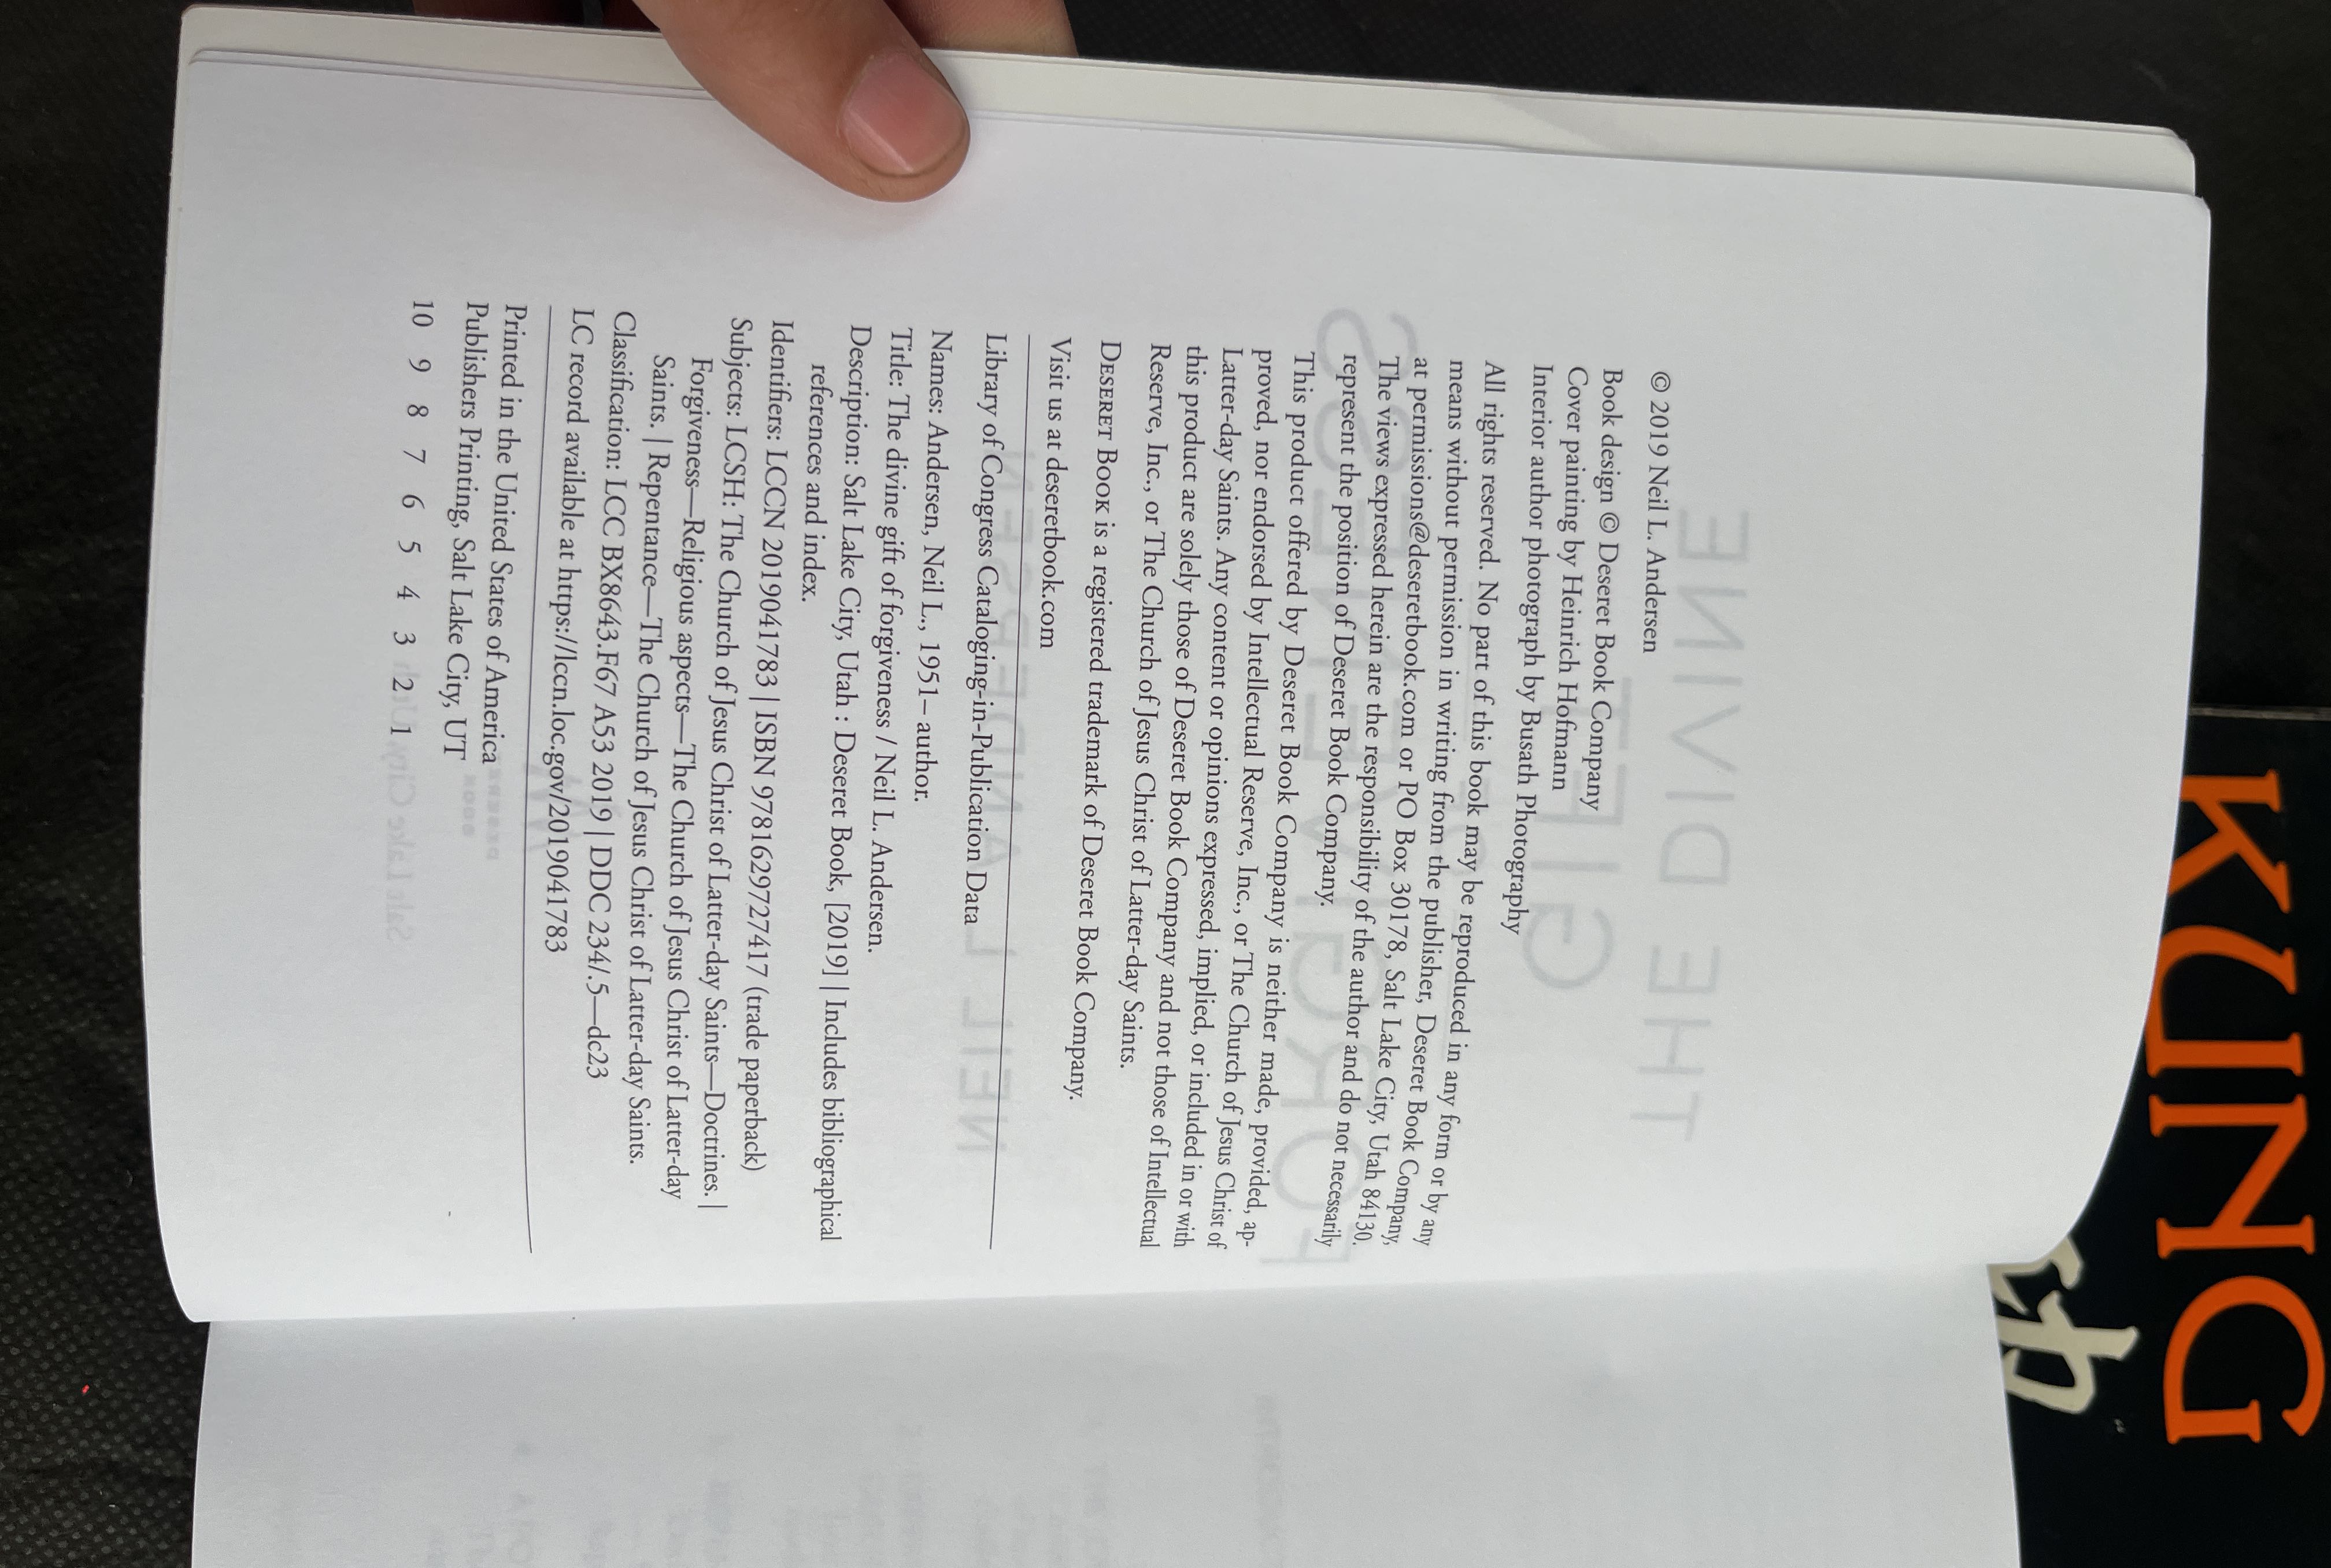 © 2019 Neil L. Andersen
Book design © Deseret Book Company
Cover painting by Heinrich Hofmann
Interior author photograph by Busath Photography
All rights reserved. No part of this book may be reproduced in any form or by any
means without permission in writing from the publisher, Deseret Book Company,
at permissions@deseretbook.com or PO Box 30178, Salt Lake City, Utah 84130.
The views expressed herein are the responsibility of the author and do not necessarily
represent the position of Deseret Book Company.
This product offered by Deseret Book Company is neither made, provided, ap-
proved, nor endorsed by Intellectual Reserve, Inc., or The Church of Jesus Christ of
Latter-day Saints. Any content or opinions expressed, implied, or included in or with
this product are solely those of Deseret Book Company and not those of Intellectual
Reserve, Inc., or The Church of Jesus Christ of Latter-day Saints.
DESERET BOOK is a registered trademark of Deseret Book Company.
Visit us at deseretbook.com
Library of Congress Cataloging-in-Publication Data
Names: Andersen, Neil L., 1951– author.
Title: The divine gift of forgiveness / Neil L. Andersen.
Description: Salt Lake City, Utah : Deseret Book, [2019] | Includes bibliographical
references and index.
Identifiers: LCCN 2019041783 | ISBN 9781629727417 (trade paperback)
Subjects: LCSH: The Church of Jesus Christ of Latter-day Saints—Doctrines. |
Forgiveness—Religious aspects—The Church of Jesus Christ of Latter-day
Saints. | Repentance—The Church of Jesus Christ of Latter-day Saints.
Classification: LCC BX8643.F67 A53 2019 | DDC 234/.5—dc23
LC record available at https://lccn.loc.gov/2019041783
Printed in the United States of America
Publishers Printing, Salt Lake City, UT
10 9 8 7 6 5 4 3 2 1
KUNG